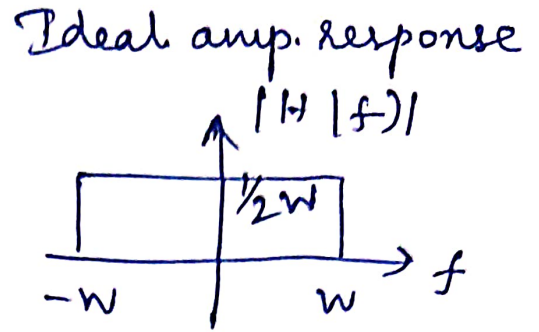 Ideal amp. response
|H(f)|
1/2W
f
-W W